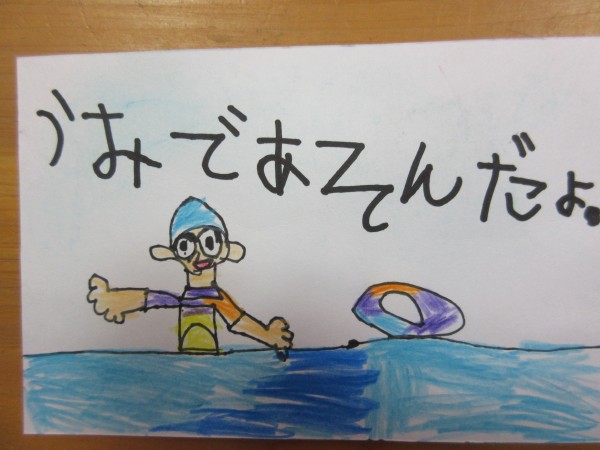 うみであそんだよ。